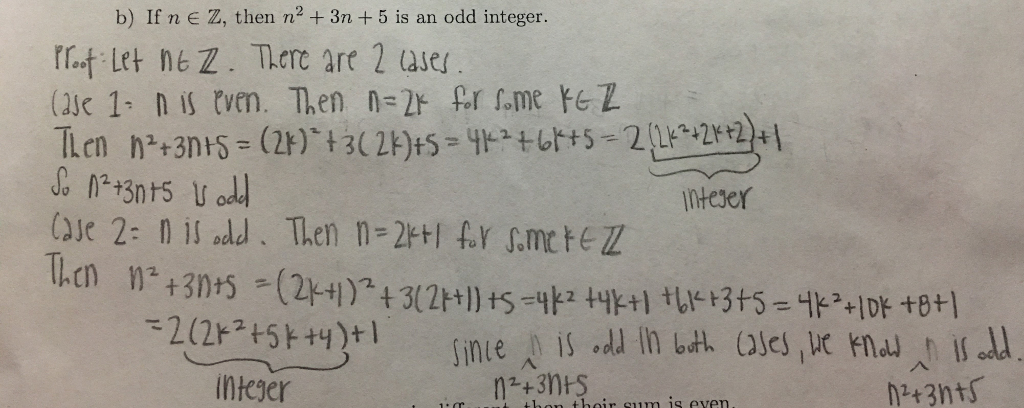 b) If n ∈ ℤ, then n² + 3n + 5 is an odd integer.
Proof: Let n∈ℤ. There are 2 cases.
Case 1: n is even. Then n=2k for some k∈ℤ
Then n²+3n+5 = (2k)²+3(2k)+5 = 4k²+6k+5 = 2(2k²+2k+2)+1
integer
So n²+3n+5 is odd
Case 2: n is odd. Then n=2k+1 for some k∈ℤ
Then n²+3n+5 = (2k+1)²+3(2k+1)+5 = 4k²+4k+1+6k+3+5 = 4k²+10k+8+1
=2(2k²+5k+4)+1
integer
Since n is odd in both cases, we know n is odd.
n²+3n+5 n²+3n+5
then their sum is even.